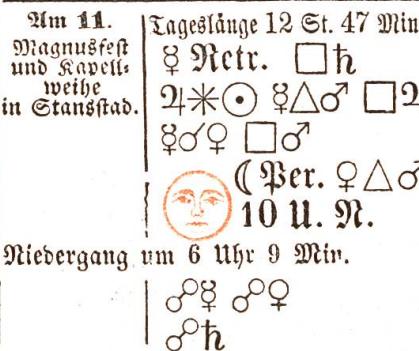 Am 11.
Magnusfest
und Kapell-
weihe
in Stansstad.
Tageslänge 12 St. 47 Min
☿ Retr. □♄
♃⚹☉ ☿△♂ □♃
☿☌♀ □♂
☾ Per. ♀△♂
10 U. N.
Niedergang um 6 Uhr 9 Min.
☍☿ ☍♀
☍♄